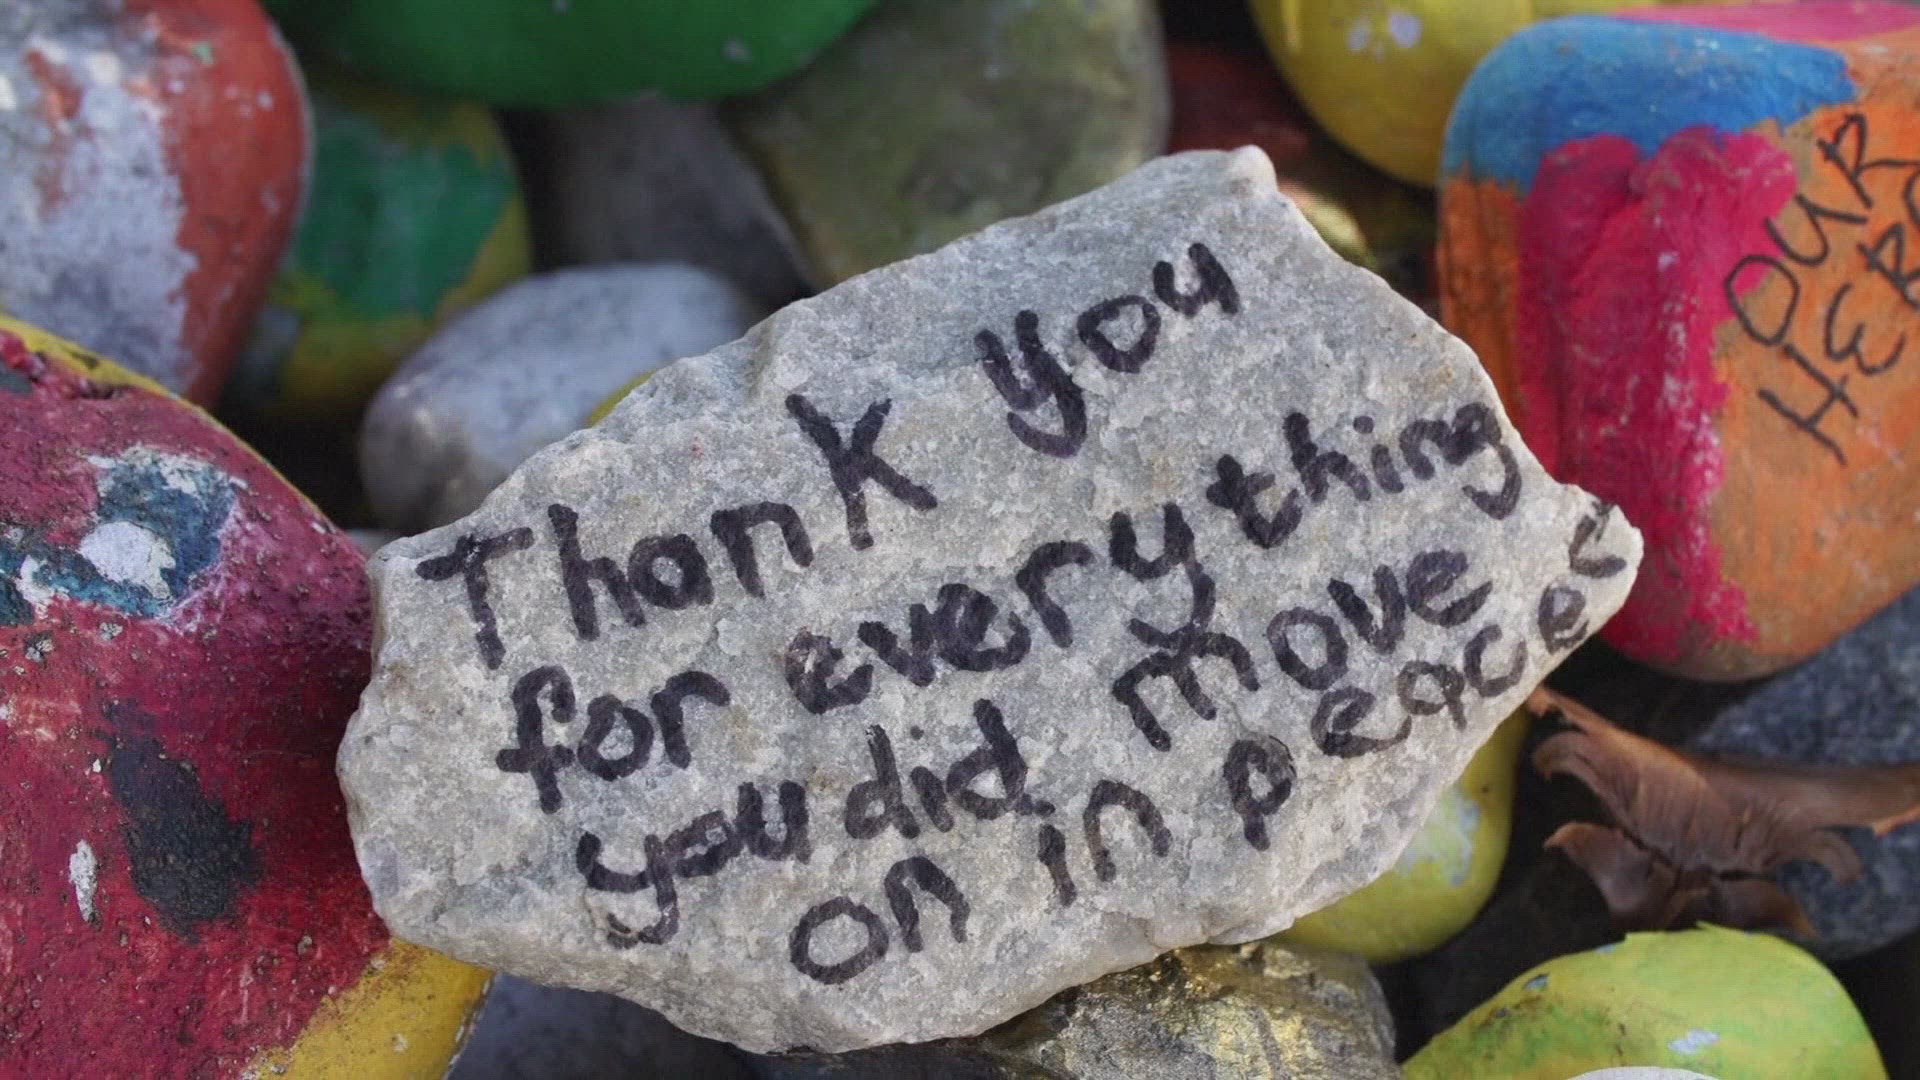 Thank you
for everything
you did move
on in peace
OUR
HERO